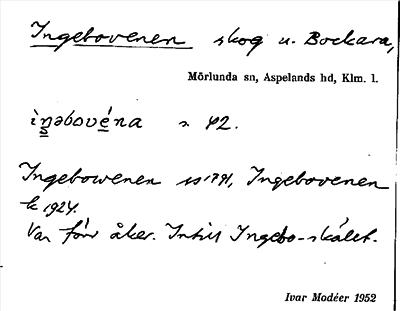 Ingebovenen skog u. Bockara,
Mörlunda sn, Aspelands hd, Klm. l.
ìŋəbovéna s. 42.
Ingebowenen ss 1791, Ingebovenen
k 1924.
Var förr åker. Intill Ingebo-skálet.
Ivar Modéer 1952